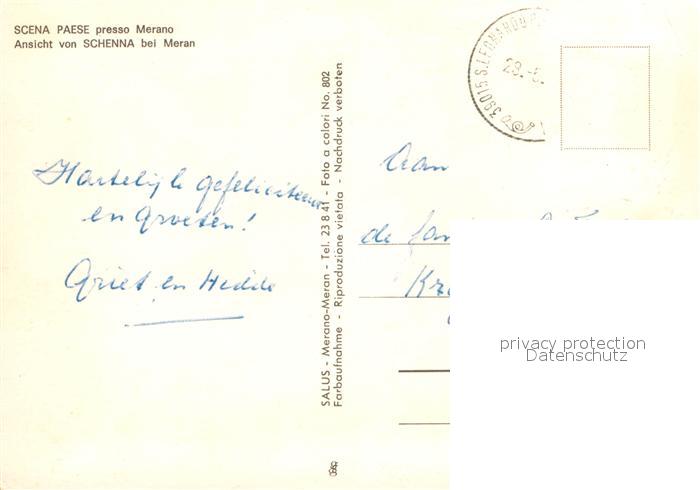 SCENA PAESE presso Merano
Ansicht von SCHENNA bei Meran
Hartelijk gefeliciteerd
en Groeten!
Griet en Hedde
SALUS - Merano-Meran - Tel. 23 8 41 - Foto a colori No. 802
Farbaufnahme - Riproduzione vietata - Nachdruck verboten
39015 S. LEONARDO
28.-6.
Aan
de fam
privacy protection
Datenschutz